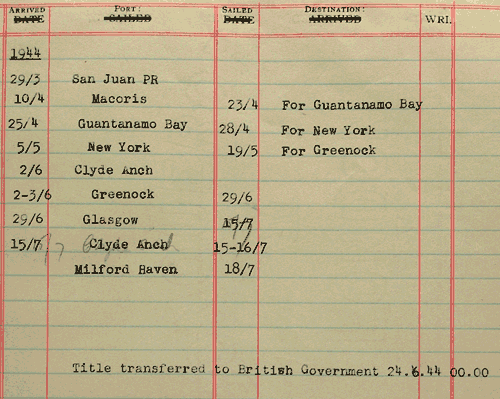 ARRIVED PORT: SAILED DESTINATION: WRI.
DATE SAILED DATE ARRIVED
1944
29/3 San Juan PR
10/4 Macoris 23/4 For Guantanamo Bay
25/4 Guantanamo Bay 28/4 For New York
5/5 New York 19/5 For Greenock
2/6 Clyde Anch
2-3/6 Greenock 29/6
29/6 Glasgow 15/7
15/7 Clyde Anch 15-16/7
Milford Haven 18/7
Title transferred to British Government 24.6.44 00.00